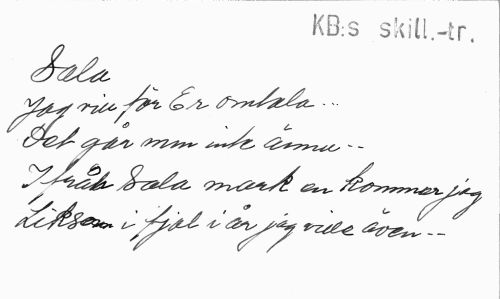 KB:s skill.-tr.
Sala
Jag vill för Er omtala...
Det går min ännu--
Ifrån Sala mark en kommer jag
Liksom i fjol i år jag även--